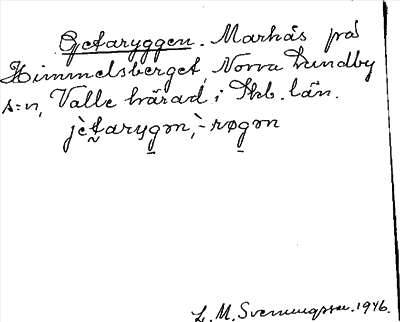 Getaryggen. Markås på
Himmelsberget, Norra Lundby
s:n, Valle härad i Skb. län.
jètarygɘn, -røgɘn
L. M. Svenungsson. 1946.